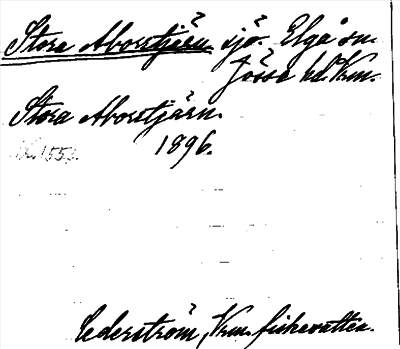 Stora Aborrtjärn sjö. Elgå sn.
Jösse hd. Vrm.
Stora Aborrtjärn.
1896.
Cederström, Vrm. fiskevatten.